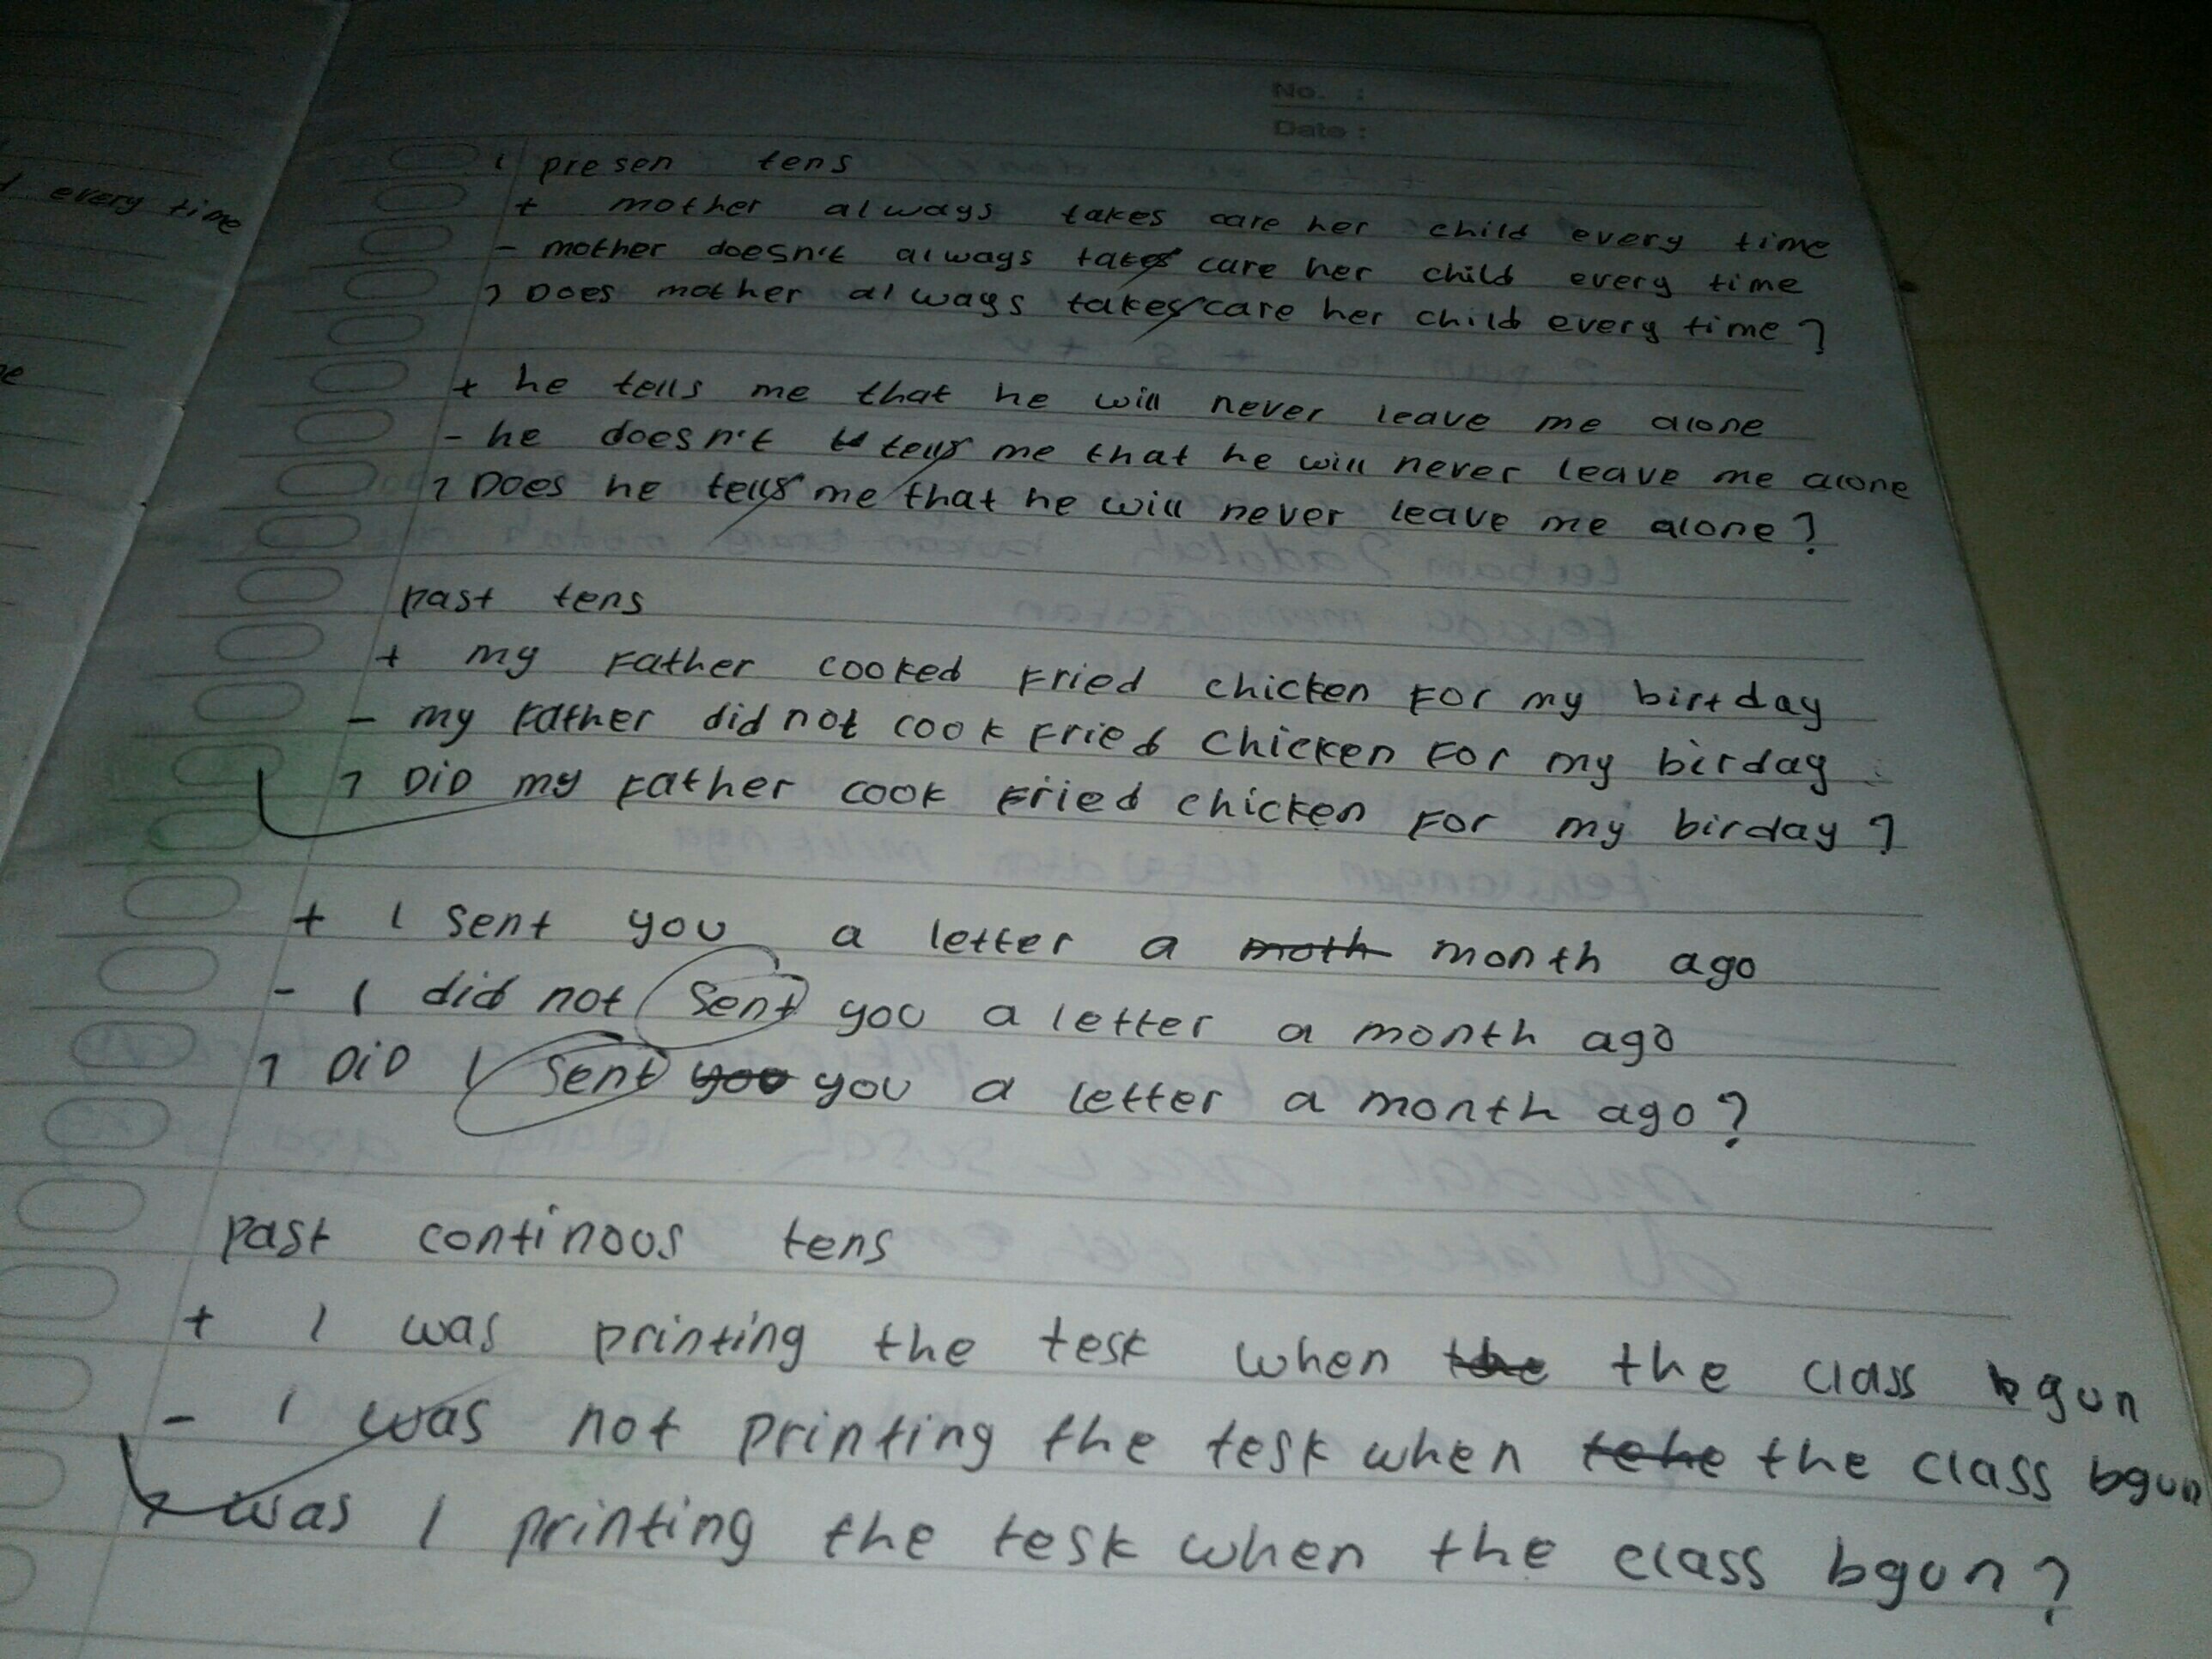 No. :
Date :
d every time
1 presen tens
+ mother always takes care her child every time
- mother doesn't always takes care her child every time
? Does mother always takes care her child every time ?
+ he tells me that he will never leave me alone
- he doesn't tells me that he will never leave me alone
? Does he tells me that he will never leave me alone ?
past tens
+ my Father cooked Fried chicken For my birtday
- my Father did not cook Fried chicken For my birday
? DiD my Father cook Fried chicken For my birday ?
+ I sent you a letter a moth month ago
- I did not sent you a letter a month ago
? DiD I sent you you a letter a month ago ?
past continous tens
+ I was printing the tesk when the the class bgun
- I was not printing the tesk when tehe the class bgun
? was I printing the tesk when the class bgun ?